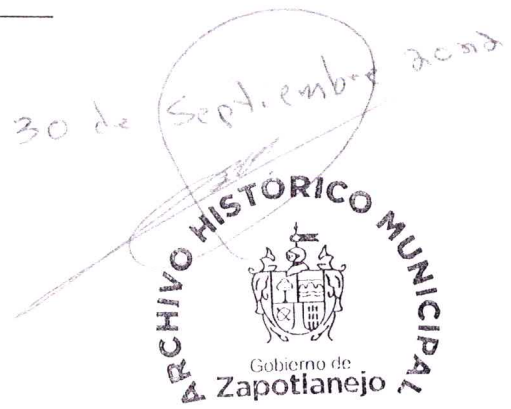 30 de Septiembre 2022
ARCHIVO HISTÓRICO MUNICIPAL
Gobierno de
Zapotlanejo